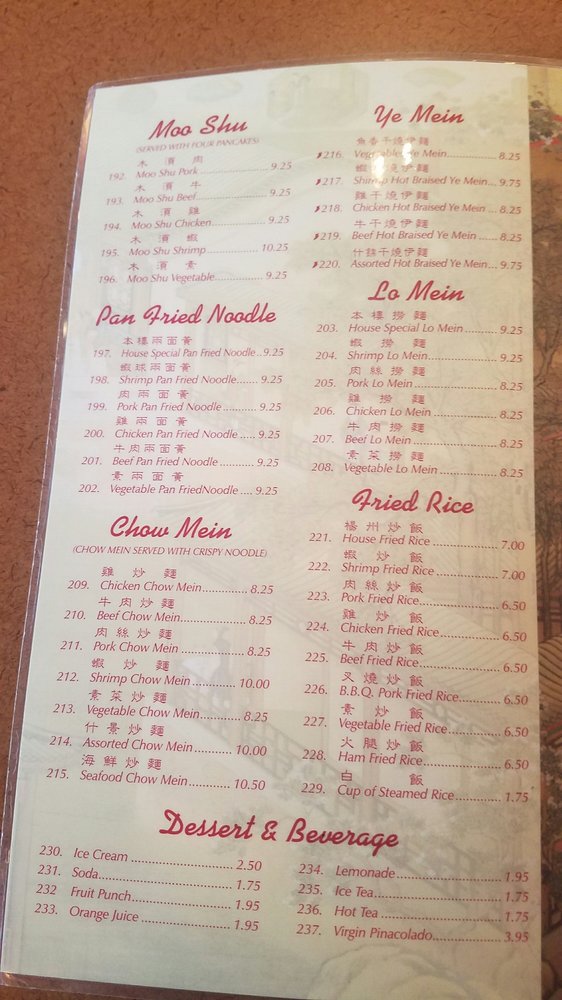 Moo Shu
(SERVED WITH FOUR PANCAKES)
木須肉
192. Moo Shu Pork 9.25
木須牛
193. Moo Shu Beef 9.25
木須雞
194. Moo Shu Chicken 9.25
木須蝦
195. Moo Shu Shrimp 10.25
木須素
196. Moo Shu Vegetable 9.25
Pan Fried Noodle
本樓兩面黃
197. House Special Pan Fried Noodle 9.25
蝦球兩面黃
198. Shrimp Pan Fried Noodle 9.25
肉兩面黃
199. Pork Pan Fried Noodle 9.25
雞兩面黃
200. Chicken Pan Fried Noodle 9.25
牛肉兩面黃
201. Beef Pan Fried Noodle 9.25
素兩面黃
202. Vegetable Pan FriedNoodle 9.25
Chow Mein
(CHOW MEIN SERVED WITH CRISPY NOODLE)
雞炒麵
209. Chicken Chow Mein 8.25
牛肉炒麵
210. Beef Chow Mein 8.25
肉絲炒麵
211. Pork Chow Mein 8.25
蝦炒麵
212. Shrimp Chow Mein 10.00
素菜炒麵
213. Vegetable Chow Mein 8.25
什景炒麵
214. Assorted Chow Mein 10.00
海鮮炒麵
215. Seafood Chow Mein 10.50
Ye Mein
魚香干燒伊麵
216. Vegetable Ye Mein 8.25
蝦干燒伊麵
217. Shrimp Hot Braised Ye Mein 9.75
雞干燒伊麵
218. Chicken Hot Braised Ye Mein 8.25
牛干燒伊麵
219. Beef Hot Braised Ye Mein 8.25
什錦干燒伊麵
220. Assorted Hot Braised Ye Mein 9.75
Lo Mein
本樓撈麵
203. House Special Lo Mein 9.25
蝦撈麵
204. Shrimp Lo Mein 9.25
肉絲撈麵
205. Pork Lo Mein 8.25
雞撈麵
206. Chicken Lo Mein 8.25
牛肉撈麵
207. Beef Lo Mein 8.25
素菜撈麵
208. Vegetable Lo Mein 8.25
Fried Rice
楊州炒飯
221. House Fried Rice 7.00
蝦炒飯
222. Shrimp Fried Rice 7.00
肉絲炒飯
223. Pork Fried Rice 6.50
雞炒飯
224. Chicken Fried Rice 6.50
牛肉炒飯
225. Beef Fried Rice 6.50
叉燒炒飯
226. B.B.Q. Pork Fried Rice 6.50
素炒飯
227. Vegetable Fried Rice 6.50
火腿炒飯
228. Ham Fried Rice 6.50
白飯
229. Cup of Steamed Rice 1.75
Dessert & Beverage
230. Ice Cream 2.50
231. Soda 1.75
232 Fruit Punch 1.95
233. Orange Juice 1.95
234. Lemonade 1.95
235. Ice Tea 1.75
236. Hot Tea 1.75
237. Virgin Pinacolado 3.95